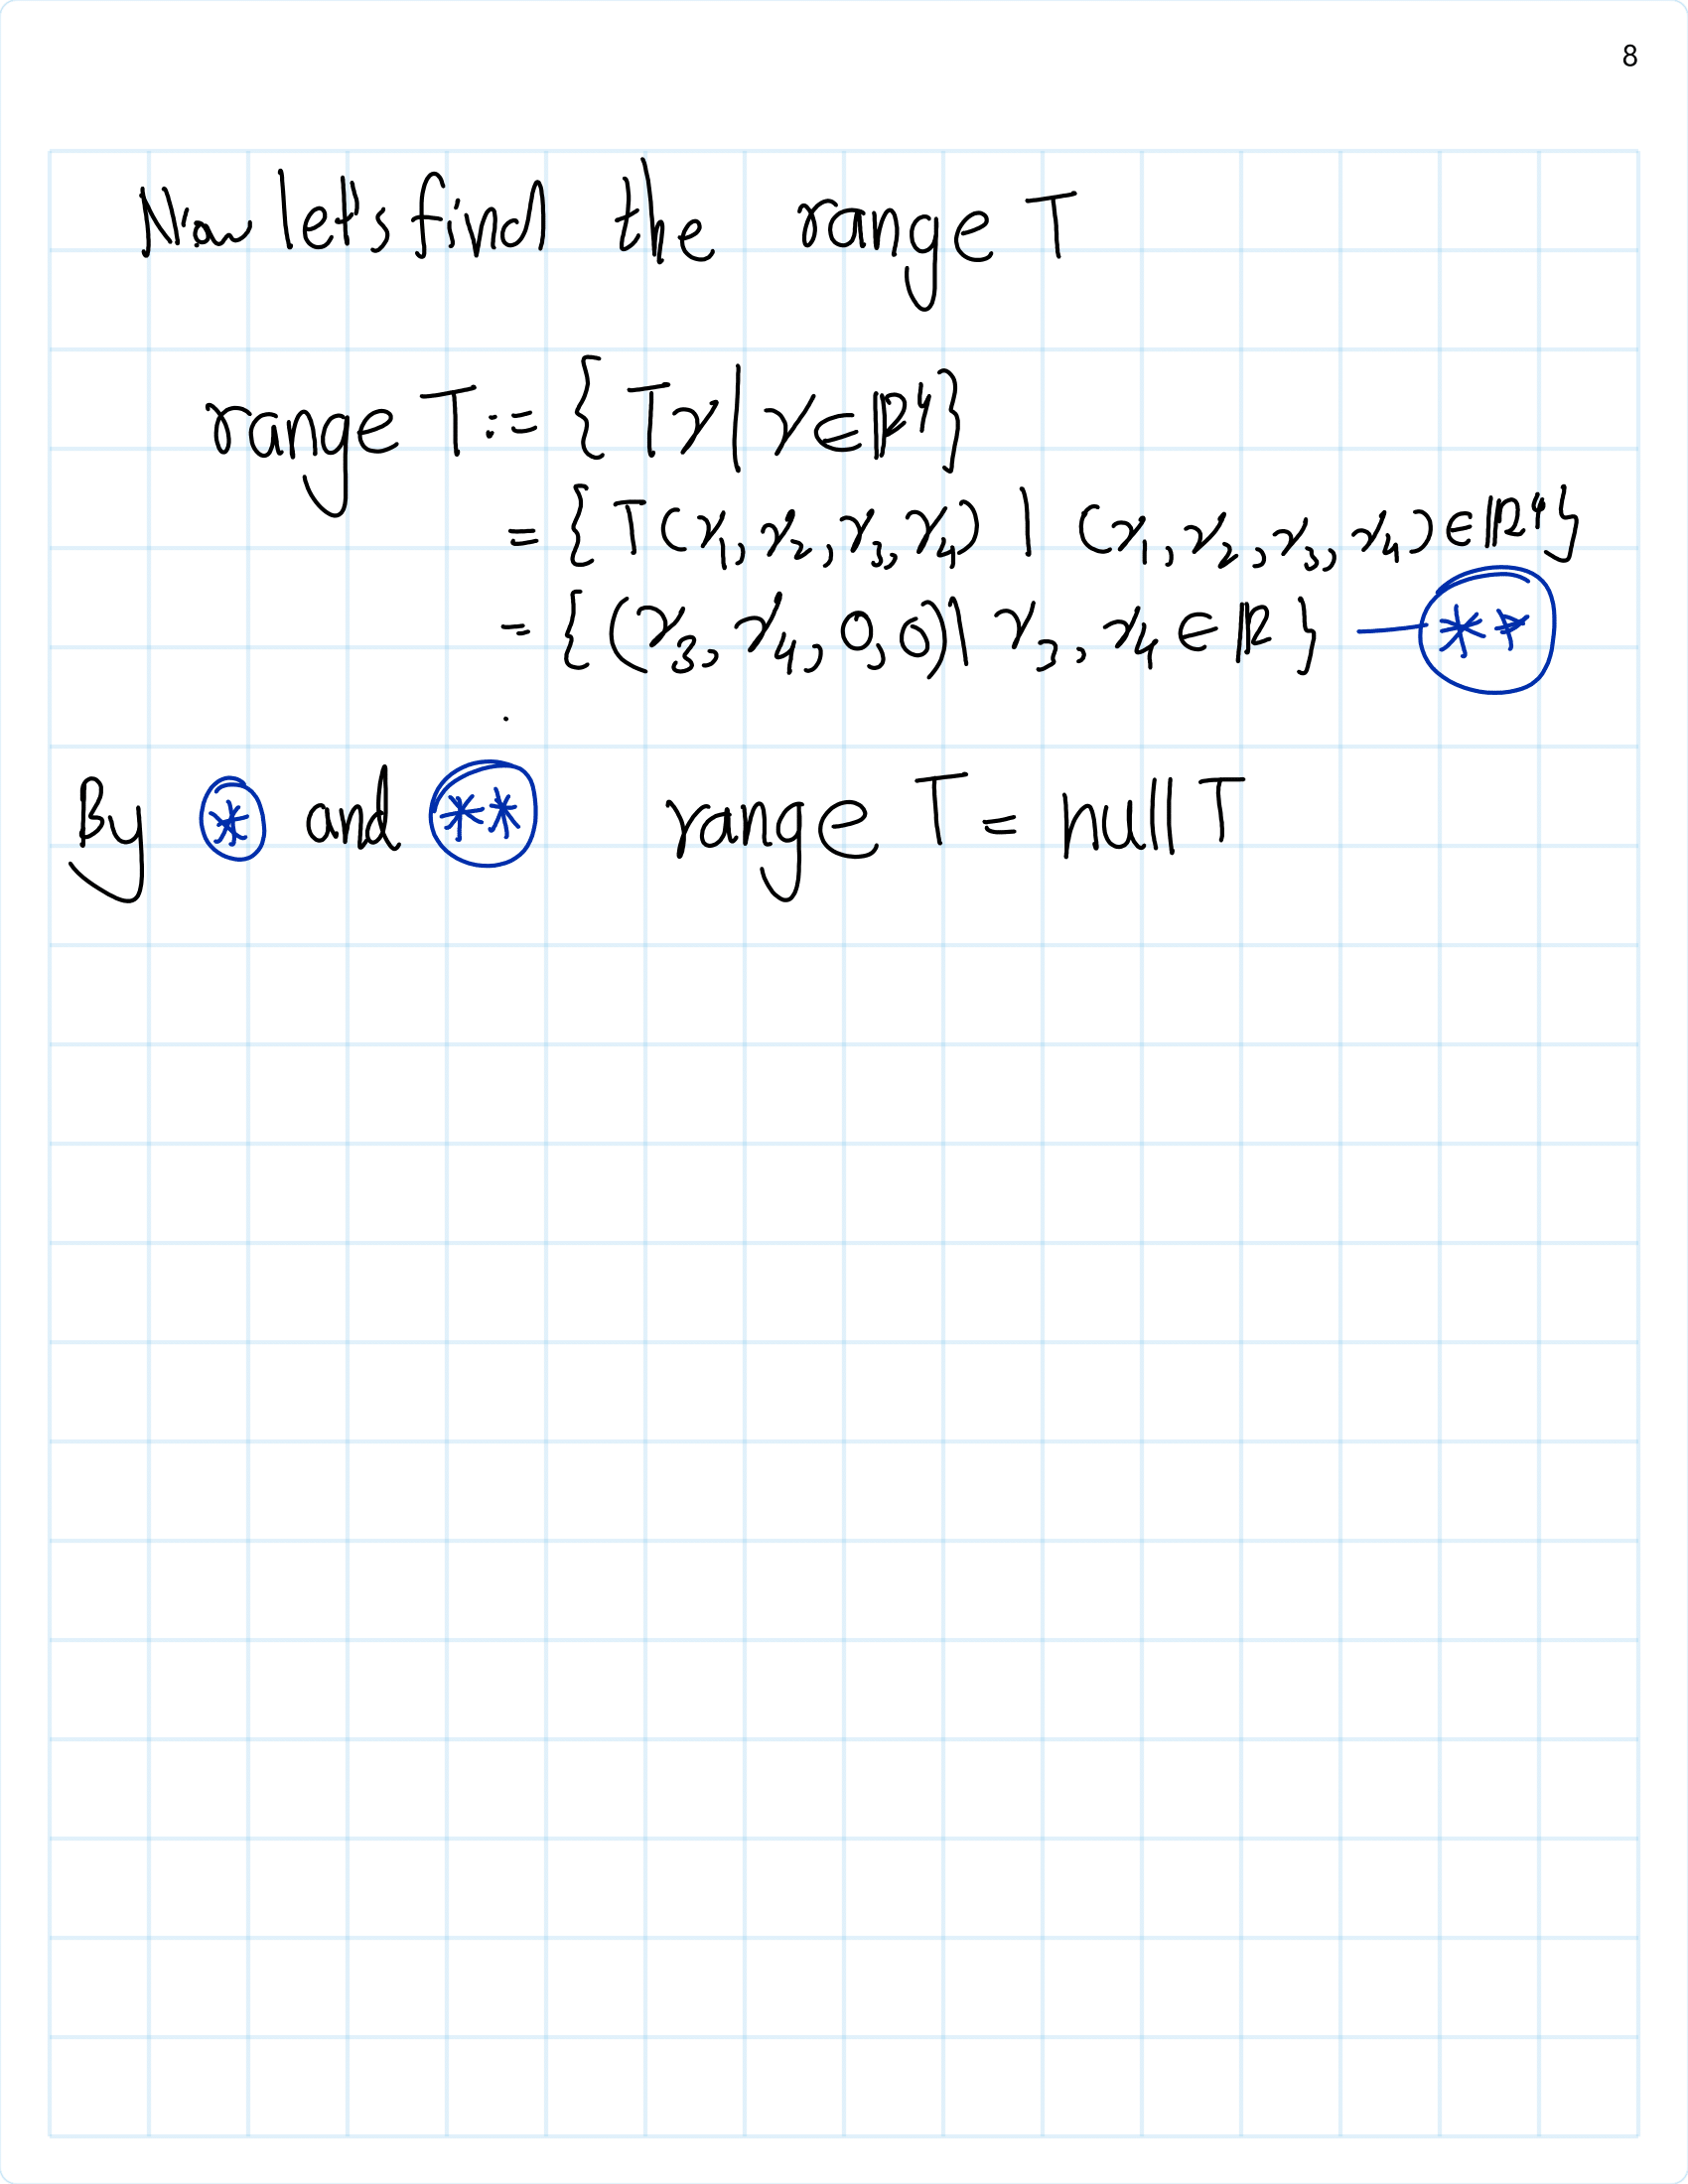 8
Now let's find the range T
range T := { Tx | x ∈ ℝ⁴}
= { T(x₁, x₂, x₃, x₄) | (x₁, x₂, x₃, x₄) ∈ ℝ⁴}
= {(x₃, x₄, 0, 0) | x₃, x₄ ∈ ℝ } — **
By * and ** range T = null T